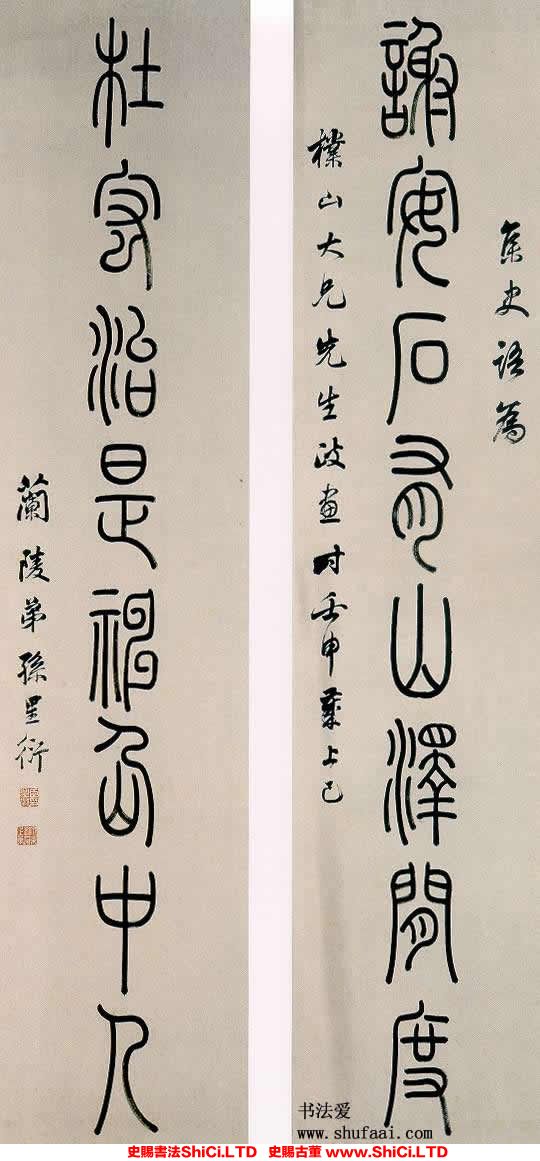 集史語為
謝安石有山澤間度
樸山大兄先生政画時壬申歲上巳
杜宏治是神仙中人
蘭陵弟孫星衍
书法爱
www.shufaai.com
史賜書法ShiCi.LTD 史賜古董 www.ShiCi.LTD